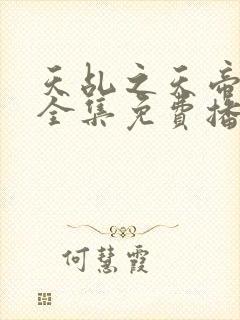 天乱之天帝
全集免費播
何慧霞